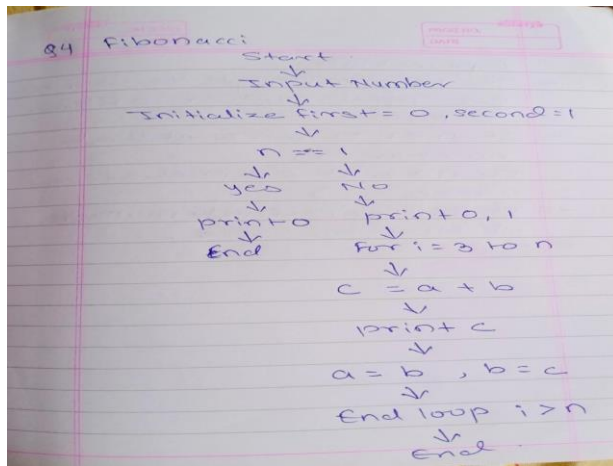 Q4 Fibonacci
Start
↓
Input Number
↓
Initialize first = 0, second = 1
↓
n == 1
↓ ↓
yes No
↓ ↓
print 0 print 0, 1
↓ ↓
End For i = 3 to n
↓
c = a + b
↓
print c
↓
a = b , b = c
↓
End loop i > n
↓
End.